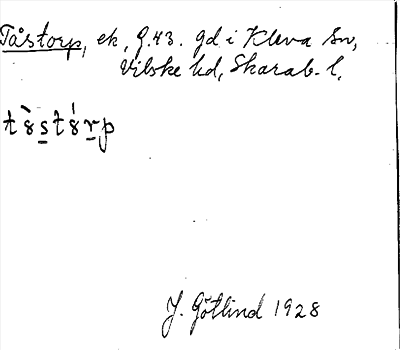 Tåstorp, ek, G.43. gd i Kleva sn,
Vilske hd, Skarab. l.
tò̀8s̲t8́r̲p
J. Götlind 1928